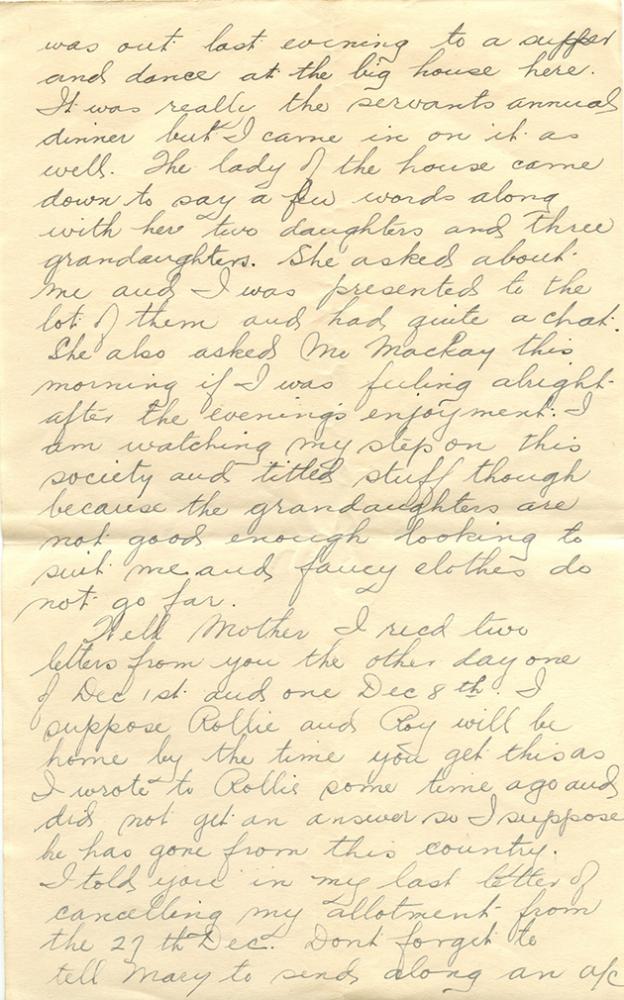 was out last evening to a supper
and dance at the big house here.
It was really the servants annual
dinner but I came in on it as
well. The lady of the house came
down to say a few words along
with here two daughters and three
grandaughters. She asked about
me and I was presented to the
lot of them and had quite a chat.
She also asked Mr Mackay this
morning if I was feeling alright
after the evenings enjoyment. I
am watching my step on this
society and titled stuff though
because the grandaughters are
not good enough looking to
suit me and fancy clothes do
not go far.
Well Mother I recd two
letters from you the other day one
of Dec 1st and one Dec 8th. I
suppose Rollie and Roy will be
home by the time you get this as
I wrote to Rollie some time ago and
did not get an answer so I suppose
he has gone from this country.
I told you in my last letter of
cancelling my allotment from
the 27th Dec. Dont forget to
tell Mary to send along an a/c